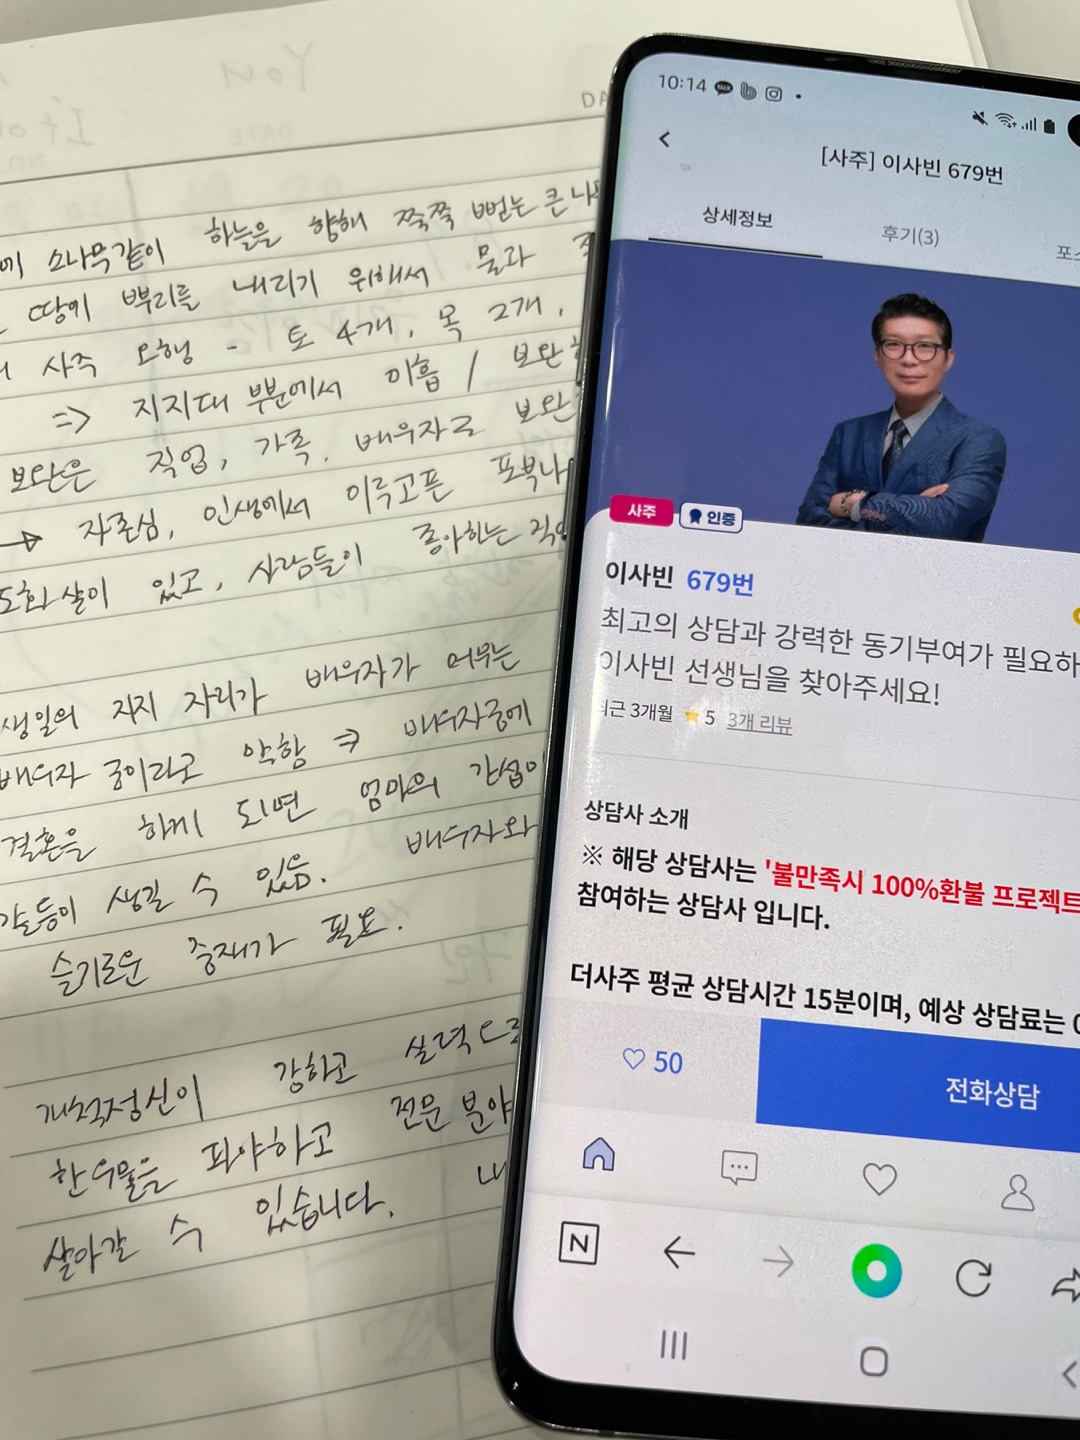 You
DATE
하늘을 향해 쭉쭉 뻗는 큰
에 소나무같이
땅에 뿌리를 내리기 위해서 물과
사주 오행 - 토 4개, 목 2개,
=> 지지대 부분에서 이흡 / 보완
보완은 직업, 가족, 배우자로 보완
→ 자존심, 인생에서 이루고픈 포부나
도화살이 있고, 사람들이 좋아하는 직업
생일의 지지 자리가 배우자가 머무는
배우자 궁이라고 약함 => 배우자궁에
결혼을 하게 되면 엄마의 간섭이
갈등이 생길 수 있음. 배우자와
슬기로운 중재가 필요.
개척정신이 강하고 실력으로
한 우물을 파야하고 전문 분야
살아갈 수 있습니다. 내
10:14
[사주] 이사빈 679번
상세정보 후기(3)
사주 인증
이사빈 679번
최고의 상담과 강력한 동기부여가 필요하
이사빈 선생님을 찾아주세요!
최근 3개월 5 3개 리뷰
상담사 소개
※ 해당 상담사는 '불만족시 100%환불 프로젝트
참여하는 상담사 입니다.
더사주 평균 상담시간 15분이며, 예상 상담료는
50 전화상담
N